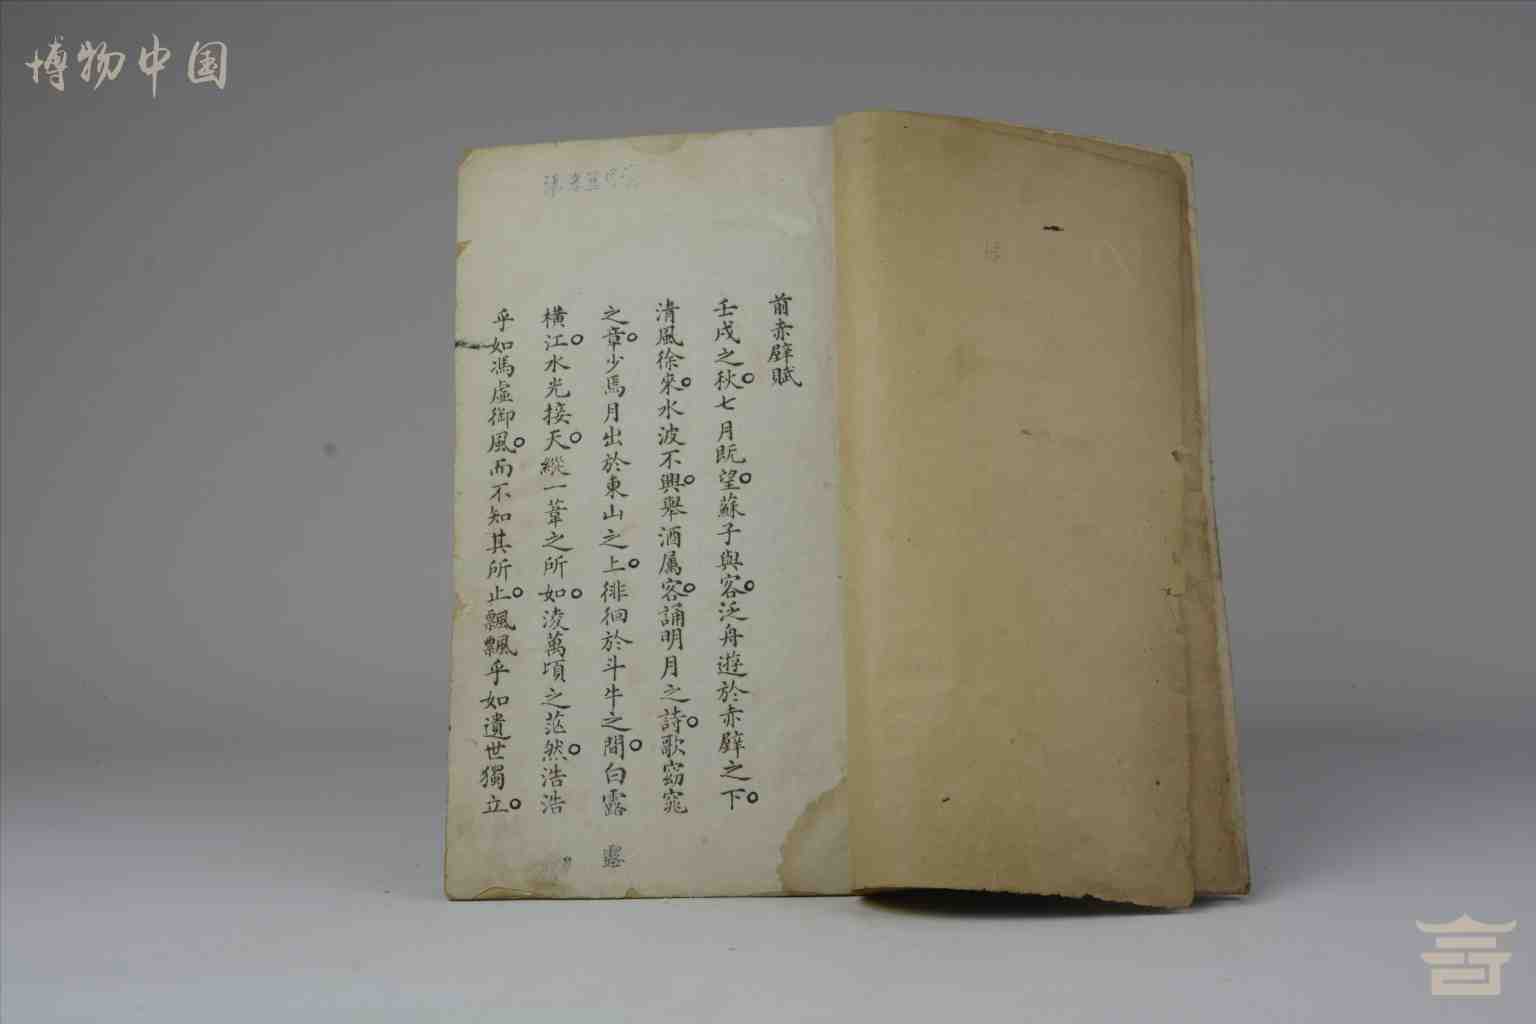 博物中国
前赤壁賦
壬戌之秋。七月既望。蘇子與客。泛舟遊於赤壁之下。
清風徐來。水波不興。舉酒屬客。誦明月之詩。歌窈窕
之章。少焉月出於東山之上。徘徊於斗牛之間。白露
橫江。水光接天。縱一葦之所如。淩萬頃之茫然。浩浩
乎如馮虛御風。而不知其所止。飄飄乎如遺世獨立。